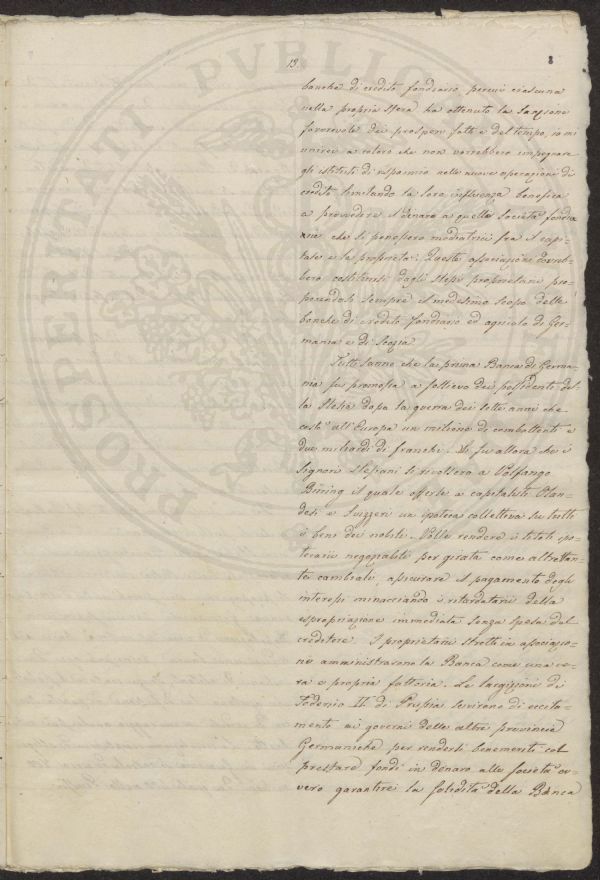 13.
8
PROSPERITATI PUBLICAE
banche di credito fondiario, perciò ciascuna
nella propria sfera ha ottenuto la sanzione
favorevole dei prosperi fatti e del tempo, io mi
unirei a coloro che non vorrebbero impegnare
gli istituti di risparmio nelle nuove operazioni di
credito limitando la loro influenza benefica
a provvedere il denaro a quelle società fondia-
rie che si ponessero mediatrici fra il capi-
tale e la proprietà. Queste associazioni dovreb-
bero costituirsi dagli stessi proprietarii pro-
ponendosi sempre il medesimo scopo delle
banche di credito fondiario ed agricolo di Ger-
mania e di Scozia.
Tutti sanno che la prima Banca di Germa-
nia fu promossa a sollievo dei possidenti del-
la Slesia dopo la guerra dei sette anni che
costò all'Europa un milione di combattenti e
due miliardi di franchi. Fu allora che i
Signori Slesiani si rivolsero a Volfango
Büring il quale offerse a capitalisti Olan-
desi e Svizzeri un ipoteca collettiva su tutti
i beni dei nobili. Volle rendere i titoli ipo-
tecarii negoziabili per girata come altrettan-
te cambiali, assicurare il pagamento degli
interessi minacciando i ritardatarii della
espropriazione immediata senza spesa del
creditore. I proprietarii stretti in associazio-
ne amministrarono la Banca come una ve-
ra e propria fattoria. Le largizioni di
Federico II. di Prussia servirono di eccita-
mento ai governi delle altre provincie
Germaniche per rendersi benemerite col
prestare fondi in denaro alle società ov-
vero garantire la solidità della Banca